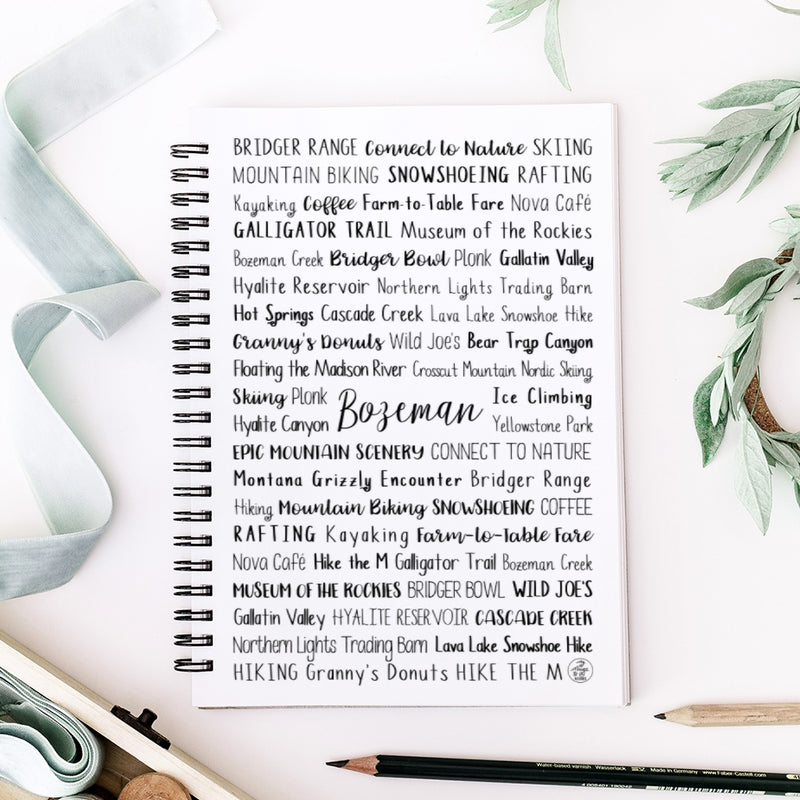 BRIDGER RANGE Connect to Nature SKIING
MOUNTAIN BIKING SNOWSHOEING RAFTING
Kayaking Coffee Farm-to-Table Fare Nova Café
GALLIGATOR TRAIL Museum of the Rockies
Bozeman Creek Bridger Bowl Plonk Gallatin Valley
Hyalite Reservoir Northern Lights Trading Barn
Hot Springs Cascade Creek Lava Lake Snowshoe Hike
Granny's Donuts Wild Joe's Bear Trap Canyon
Floating the Madison River Crosscut Mountain Nordic Skiing
Skiing Plonk Ice Climbing
Bozeman
Hyalite Canyon Yellowstone Park
EPIC MOUNTAIN SCENERY CONNECT TO NATURE
Montana Grizzly Encounter Bridger Range
Hiking Mountain Biking SNOWSHOEING COFFEE
RAFTING Kayaking Farm-to-Table Fare
Nova Café Hike the M Galligator Trail Bozeman Creek
MUSEUM OF THE ROCKIES BRIDGER BOWL WILD JOE'S
Gallatin Valley HYALITE RESERVOIR CASCADE CREEK
Northern Lights Trading Barn Lava Lake Snowshoe Hike
HIKING Granny's Donuts HIKE THE M
Water-based varnish Wasserlack Made in Germany www.Faber-Castell.com